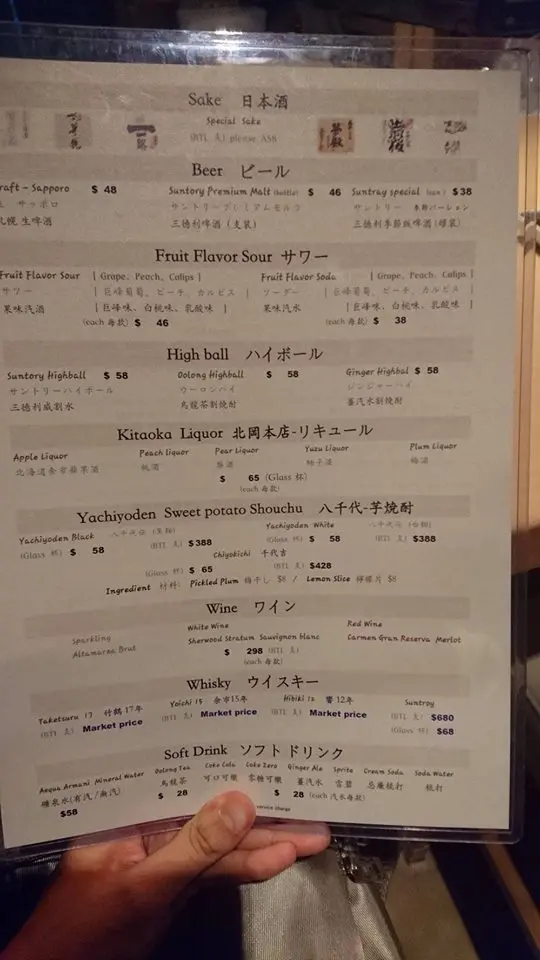 Sake 日本酒
Special Sake
(BTL 支) please ASS
Beer ビール
raft - Sapporo $ 48 Suntory Premium Malt (bottle) $ 46 Suntray special (can) $ 38
サッポロ サントリープレミアムモルツ サントリー 季節バーション
札幌 生啤酒 三德利啤酒 (支裝) 三德利季節版啤酒 (罐裝)
Fruit Flavor Sour サワー
Fruit Flavor Sour [ Grape, Peach, Calips ] Fruit Flavor Soda [ Grape, Peach, Calips ]
サワー [ 巨峰葡萄、ピーチ、カルピス ] ソーダー [ 巨峰葡萄、ピーチ、カルピス ]
果味汽酒 [ 巨峰味、白桃味、乳酸味 ] 果味汽水 [ 巨峰味、白桃味、乳酸味 ]
(each 每款) $ 46 (each 每款) $ 38
High ball ハイボール
Suntory Highball $ 58 Oolong Highball $ 58 Ginger Highbal $ 58
サントリーハイボール ウーロンハイ ジンジャーハイ
三德利威割水 烏龍茶割燒酎 薑汽水割燒酎
Kitaoka Liquor 北岡本店-リキュール
Apple Liquor Peach liquor Pear Liquor Yuzu Liquor Plum Liquor
北海道余市蘋果酒 桃酒 梨酒 柚子酒 梅酒
$ 65 (Glass 杯)
(each 每款)
Yachiyoden Sweet potato Shouchu 八千代-芋焼酎
Yachiyoden Black 八千代伝 (黑麹) Yachiyoden White 八千代伝 (白麹)
(Glass 杯) $ 58 (BTL 支) $388 (Glass 杯) $ 58 (BTL 支) $388
Chiyokichi 千代吉
(Glass 杯) $ 65 (BTL 支) $428
Ingredient 材料: Pickled Plum 梅干し $8 / Lemon Slice 檸檬片 $8
Wine ワイン
Sparkling White Wine Red Wine
Altamarza Brut Sherwood Stratum Sauvignon blanc Carmen Gran Reserva Merlot
$ 298 (BTL 支)
(each 每款)
Whisky ウイスキー
Taketsuru 17 竹鶴17年 Yoichi 15 余市15年 Hibiki 12 響 12年 Suntroy
(BTL 支) Market price (BTL 支) Market price (BTL 支) Market price (BTL 支) $680
(Glass 杯) $68
Soft Drink ソフトドリンク
Acqua Armani Mineral Water Oolong Tea Coke Cola Coke Zero Ginger Ale Sprite Cream Soda Soda Water
礦泉水(有汽/無汽) 烏龍茶 可口可樂 零糖可樂 薑汽水 雪碧 忌廉梳打 梳打
$58 $ 28 $ 28 (each 汽水每款)
service charge